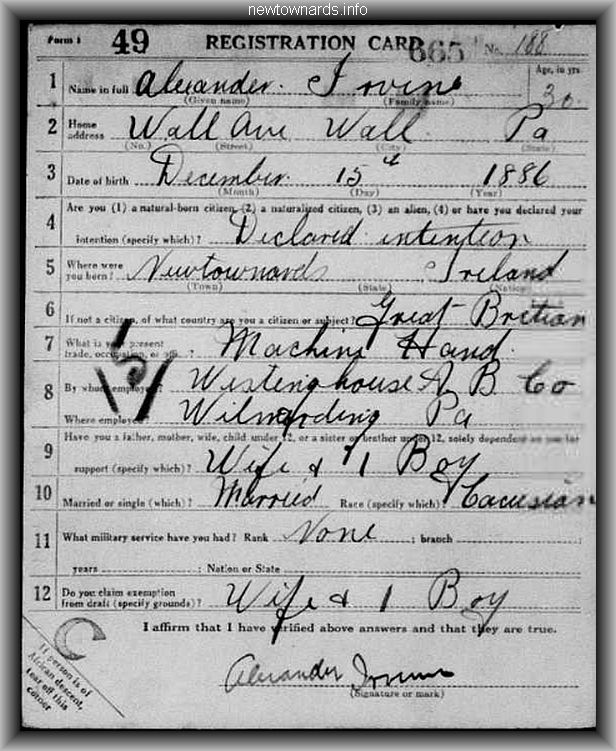 newtownards.info
Form 1 49 REGISTRATION CARD 665 No. 188
1 Name in full Alexander Irvine Age, in yrs 30
(Given name) (Family name)
2 Home address Wall Ave Wall Pa
(No.) (Street) (City) (State)
3 Date of birth December 15th 1886
(Month) (Day) (Year)
Are you (1) a natural-born citizen, (2) a naturalized citizen, (3) an alien, (4) or have you declared your
4 intention (specify which)? Declared intention
5 Where were you born? Newtownards Ireland
(Town) (State) (Nation)
6 If not a citizen, of what country are you a citizen or subject? Great Britian
7 What is your present trade, occupation, or office? Machine Hand
8 By whom employed? Westinghouse A B Co
Where employed? Wilmerding Pa
9 Have you a father, mother, wife, child under 12, or a sister or brother under 12, solely dependent on you for
support (specify which)? Wife & 1 Boy
10 Married or single (which)? Married Race (specify which)? Caucusian
11 What military service have you had? Rank None ; branch
years ; Nation or State
12 Do you claim exemption from draft (specify grounds)? Wife & 1 Boy
I affirm that I have verified above answers and that they are true.
Alexander Irvine
(Signature or mark)
If person is of
African descent,
tear off this
corner